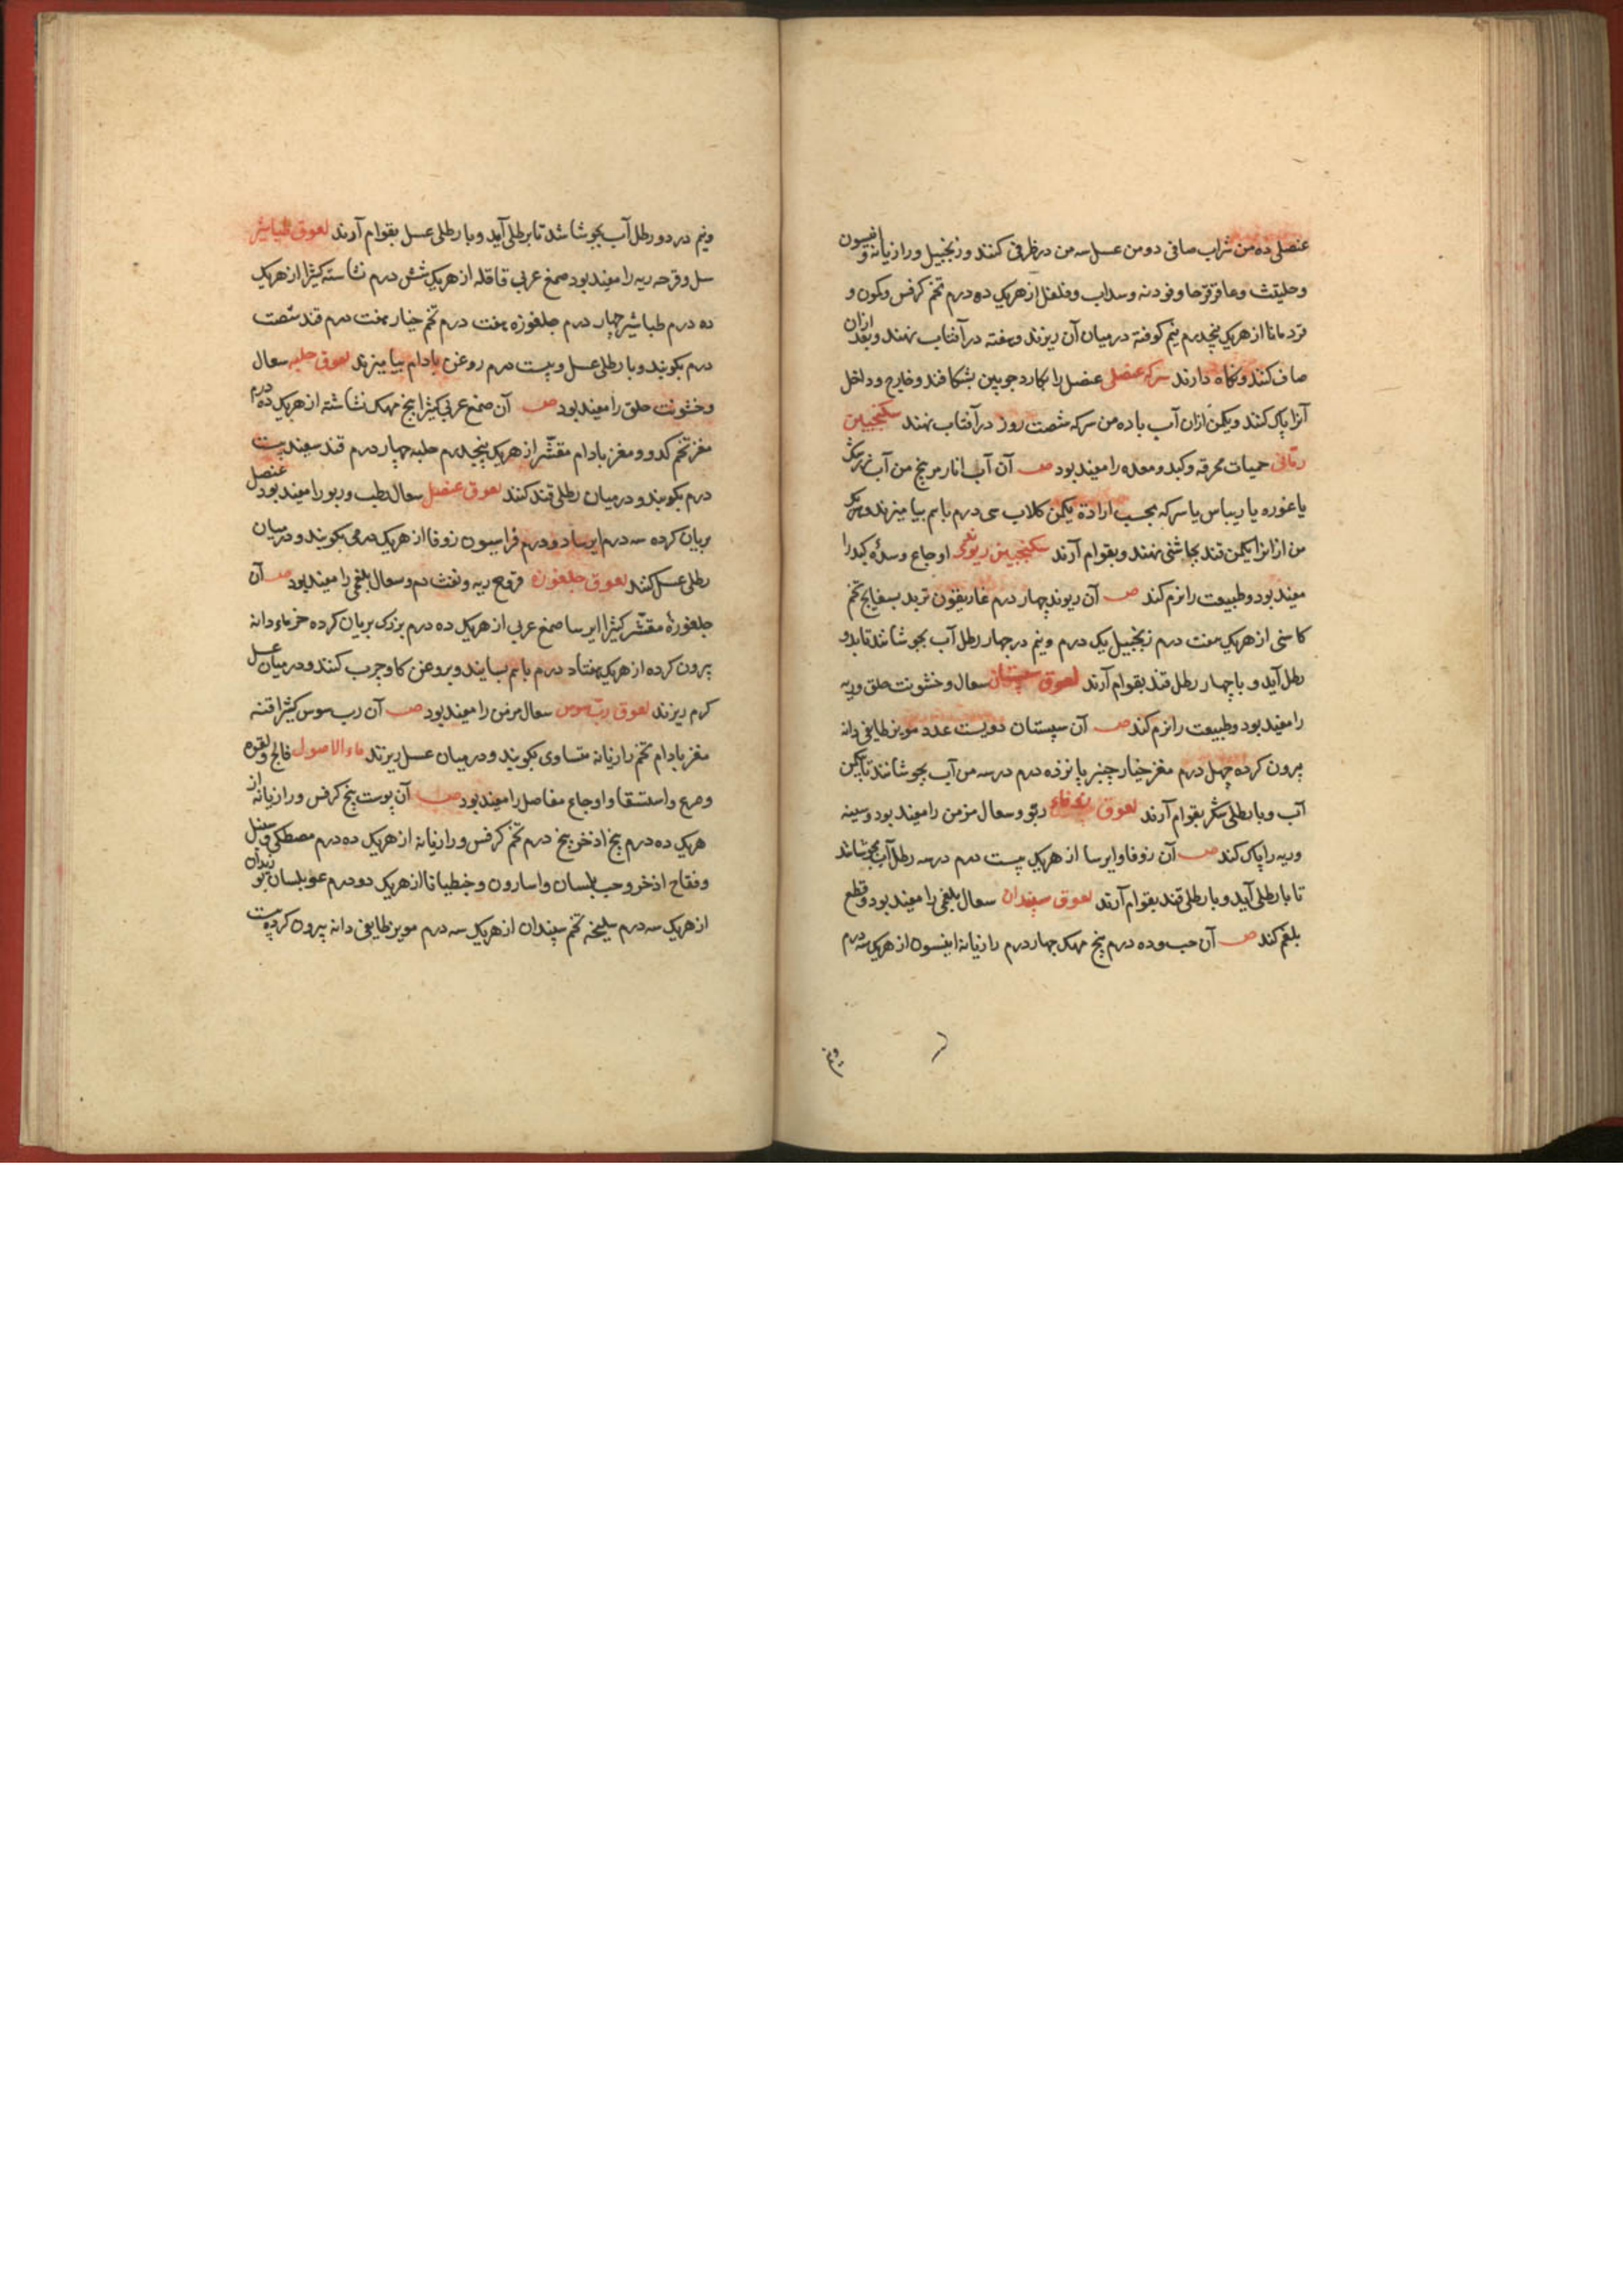 عنصلی ده من شراب صافی دو من عسل سه من در ظرفی کنند و زنجبیل و رازیانه و انیسون
و حلتیت و عاقرقرحا و فودنه و سداب و فلفل از هریک ده درم تخم کرفس و کمون و
قردمانا از هریک پنجدرم نیم کوفته در میان آن ریزند و هفته در آفتاب نهند و بعد ازان
صاف کنند و نکاه دارند سرکه عنصلی عنصل را بکارد چوبین بشکافند و خارج و داخل
آنرا پاک کنند و یکمن ازان آب با ده من سرکه شصت روز در آفتاب نهند سکنجبین
رمانی حمیات محرقه و کبد و معده را مفید بود ص آن آب انار مر پنج من آب زرشک
یا غوره یا ریباس یا سرکه بحسب ارادة یکمن کلاب سی درم باهم بیامیزند و هر
من ازانرا یکمن قند بچاشنی نهند و بقوام آرند سکنجبین ریوندی اوجاع و سدهٔ کبد را
مفید بود و طبیعت را نرم کند ص آن ریوند چهار درم غاریقون تربد بسفایج تخم
کاسنی از هریک هفت درم زنجبیل یک درم و نیم در چهار رطل آب بجوشانند تا بدو
رطل آید و با چهار رطل قند بقوام آرند لعوق سپستان سعال و خشونت حلق و ریه
را مفید بود و طبیعت را نرم کند ص آن سپستان دویست عدد مویز طایفی دانه
بیرون کرده چهل درم مغز خیار چنبر پانزده درم در سه من آب بجوشانند تا یکمن
آب و با رطلی شکر بقوام آرند لعوق زوفاء ربو و سعال مزمن را مفید بود و سینه
و ریه را پاک کند ص آن زوفا و ایرسا از هریک بیست درم در سه رطل آب بجوشانند
تا با رطلی آید و با رطلی قند بقوام آرند لعوق سپندان سعال بلغمی را مفید بود و قطع
بلغم کند ص آن حب ده درم بیخ مهک چهار درم رازیانه انیسون از هریک سه درم
و نیم
و نیم در دو رطل آب بجوشانند تا برطلی آید و با رطلی عسل بقوام آرند لعوق طباشیر
سل و قرحه ریه را مفید بود صمغ عربی قاقله از هریک شش درم نشاسته کثیرا از هریک
ده درم طباشیر چهار درم جلغوزه هفت درم تخم خیار هفت درم قند شصت
درم بکوبند و با رطلی عسل و بیست درم روغن بادام بیامیزند لعوق حلبه سعال
و خشونت حلق را مفید بود ص آن صمغ عربی کثیرا بیخ مهک نشاشته از هریک ده درم
مغز تخم کدو و مغز بادام مقشّر از هریک پنجدرم حلبه چهار درم قند سفید بیست
درم بکوبند و در میان رطلی قند کنند لعوق عنصل سعال رطب و ربو را مفید بود عنصل
بریان کرده سه درم ایرسا دو درم فراسیون زوفا از هریک درمی بکوبند و در میان
رطلی عسل کنند لعوق جلغوزه قروح ریه و نفث دم و سعال بلغمی را مفید بود ص آن
جلغوزهٔ مقشّر کثیرا ایرسا صمغ عربی از هریک ده درم بزرک بریان کرده خرماء دانه
بیرون کرده از هریک هفتاد درم باهم بسایند و بروغن کاو چرب کنند و در میان عسل
کرم ریزند لعوق ربّ سوس سعال مزمن را مفید بود ص آن رب سوس کثیرا قنه
مغز بادام تخم رازیانه متساوی بکوبند و در میان عسل ریزند ماء الاصول فالج و لقوه
و صرع و استسقا و اوجاع مفاصل را مفید بود ص آن پوست بیخ کرفس و رازیانه از
هریک ده درم بیخ اذخر پنج درم تخم کرفس و رازیانه از هریک ده درم مصطکی و سنبل
و فقاح اذخر و حب بلسان و اسارون و جنطیانا از هریک دو درم عود بلسان
از هریک سه درم سلیخه تخم سپندان از هریک سه درم مویز طایفی دانه بیرون کرده بیست